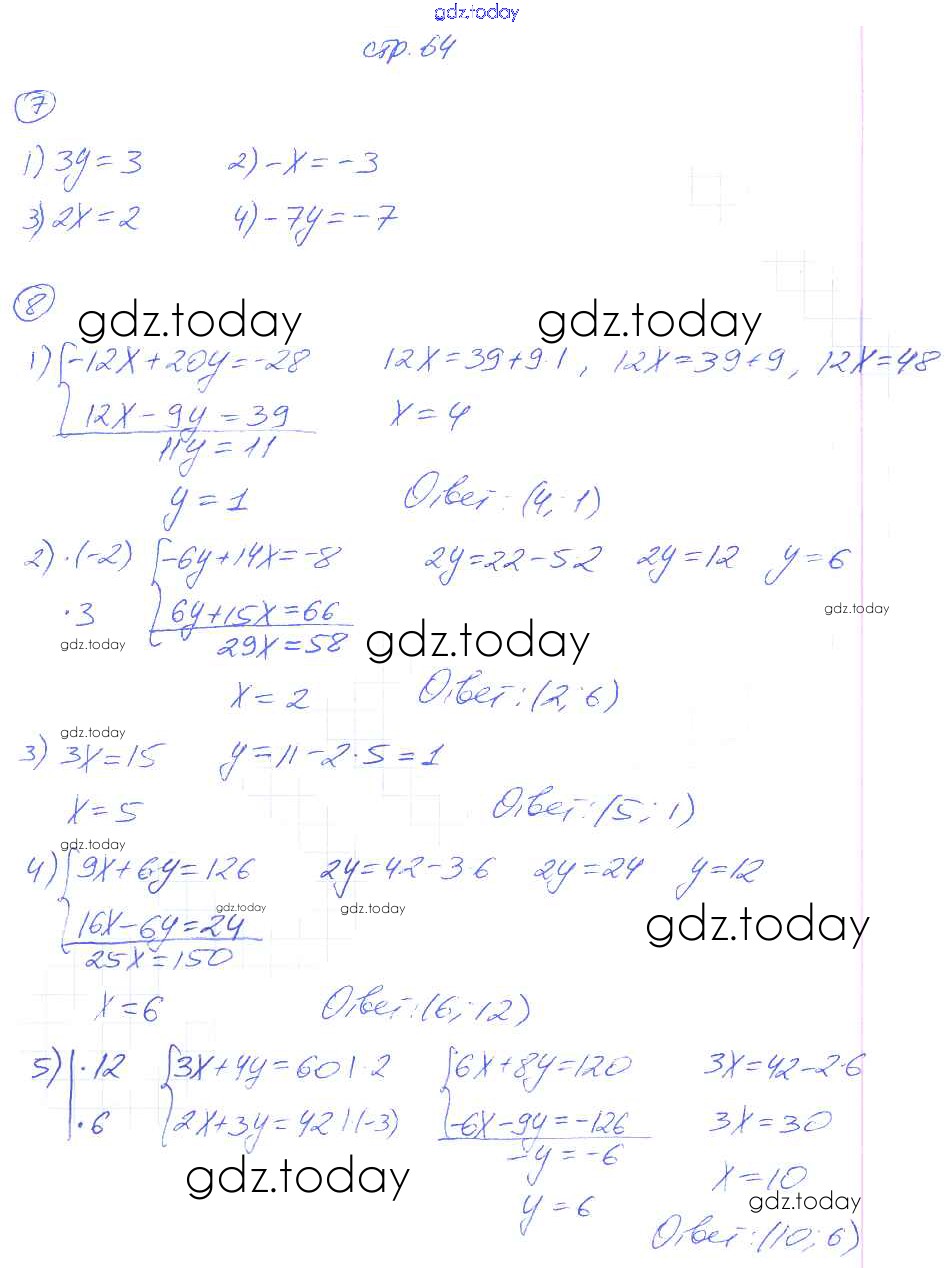 gdz.today
стр. 64
7
1) 3y = 3 2) -x = -3
3) 2x = 2 4) -7y = -7
8
gdz.today gdz.today
1) { -12x + 20y = -28 12x = 39 + 9·1, 12x = 39 + 9, 12x = 48
12x - 9y = 39 x = 4
11y = 11
y = 1 Ответ: (4; 1)
2) ·(-2) { -6y + 14x = -8 2y = 22 - 5·2 2y = 12 y = 6
·3 6y + 15x = 66 gdz.today
gdz.today 29x = 58 gdz.today
x = 2 Ответ: (2; 6)
gdz.today
3) 3x = 15 y = 11 - 2·5 = 1
x = 5 Ответ: (5; 1)
gdz.today
4) { 9x + 6y = 126 2y = 42 - 3·6 2y = 24 y = 12
gdz.today gdz.today gdz.today
16x - 6y = 24
25x = 150
x = 6 Ответ: (6; 12)
5) | ·12 { 3x + 4y = 60 | ·2 { 6x + 8y = 120 3x = 42 - 2·6
·6 2x + 3y = 42 | (-3) -6x - 9y = -126 3x = 30
gdz.today -y = -6 x = 10
y = 6 gdz.today
Ответ: (10; 6)